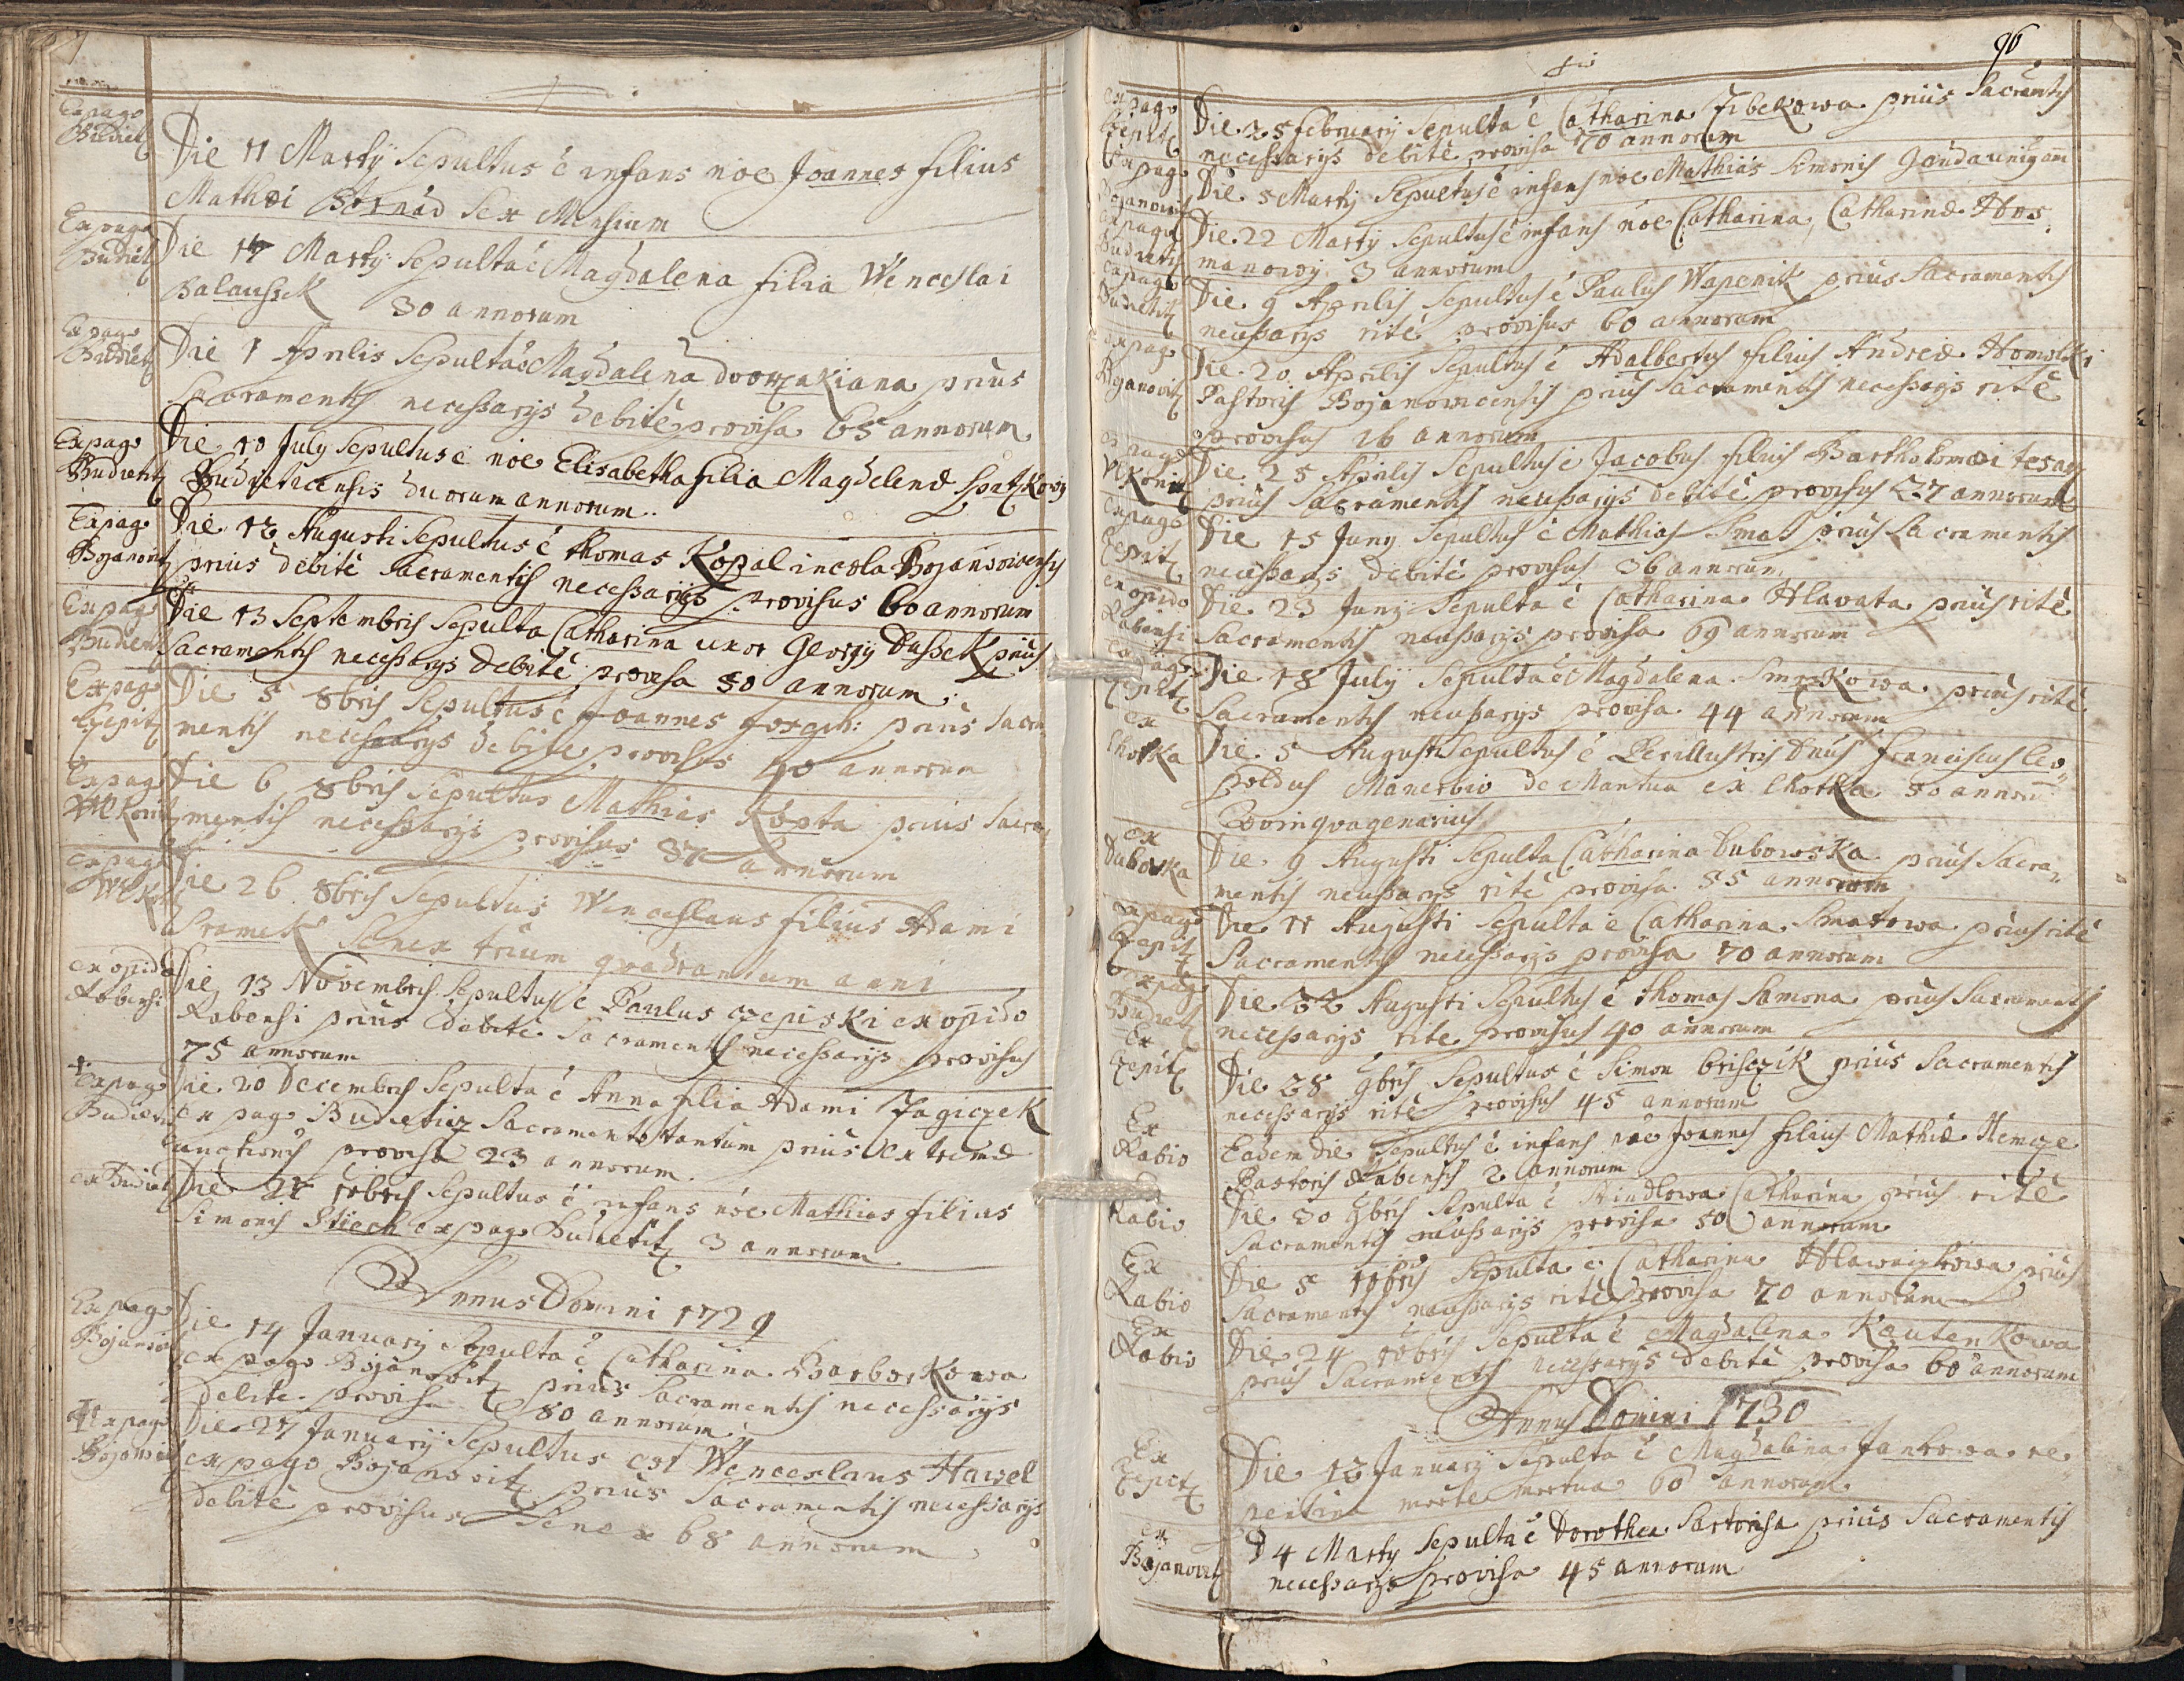 Ex pago
Budietz
Die 11 Martÿ Sepultus ē infans noe Joannes filius
Mathæi Bernád Sex Mensium
Ex pago
Budietz
Die 14 Martÿ Sepulta ē Magdalena filia Wenceslai
Balaussek 30 annorum
Ex pago
Budietz
Die 1 Aprilis Sepulta ē Magdalena dworzakiana prius
Sacramentis necessarÿs debite provisa 65 annorum
Ex pago
Budietitz
Die 10 July Sepultus ē noe Elisabetha filia Magdelenæ
Budieticensis duorum annorum.
Ex pago
Bojanowitz
Die 12 Augusti Sepultus ē thomas Kopal incola Bojanowicensis
prius debite Sacramentis necessarijs provisus 60 annorum
Ex pago
Budietitz
Die 13 Septembris Sepulta Catharina uxor Georgÿ Dussek prius
Sacramentis necessarÿs debite provisa 50 annorum.
Ex pago
Czepitz
Die 5 8bris Sepultus ē Joannes prius Sacra
mentis necessarÿs debite provisus 40 annorum
Ex pago
Wlkonitz
Die 6 8bris Sepultus Mathias Kopta prius Sacra
mentis necessarÿs provisus 37 annorum
ex pago
Wlkonitz
Die 26 8bris Sepultus Wenceslaus filius Adami
Sramek Senex trium quadrantum anni
ex opido
Rabensi
Die 13 Novembris Sepultus ē Paulus czepiski ex opido
Rabensi prius debite Sacramentis necessarÿs provisus
75 annorum
Ex pago
Budietitz
Die 20 Decembris Sepulta ē Anna filia Adami Jagiczek
ex pago Budietitz Sacramento tantum prius extremæ
unctionis provisa 23 annorum.
ex Budietitz
Die 27 10bris Sepultus ē infans noe Mathias filius
Simonis Stiech ex pago Budietitz 3 annorum
Annus Domini 1729
Ex pago
Bojanowitz
Die 14 Januarÿ Sepulta ē Catharina Barborkowa
ex pago Bojanowitz prius Sacramentis necessarÿs
debite provisa 80 annorum
Ex pago
Bojanowitz
Die 27 Januarÿ Sepultus est Wenceslaus Hawel
ex pago Bojanowitz prius Sacramentis necessarÿs
debite provisus Senex 68 annorum
96
ex pago
Czepitz
Die 25 februarÿ Sepulta ē Catharina Zibekowa prius Sacramentis
necessarÿs debite provisa 70 annorum
Ex pago
Bojanowitz
Die 5 Martÿ Sepultus ē infans noe Mathias Simonis Janda
ex pago
Budietitz
Die 22 Martÿ Sepultus ē infans noe Catharina, Catharinæ Hos
manowÿ 3 annorum
ex pago
Budietitz
Die 9 Aprilis Sepultus ē Paulus Wapenik prius Sacramentis
necessarÿs rite provisus 60 annorum
ex pago
Bojanovitz
Die 20 Aprilis Sepultus ē Adalbertus filius Andreæ Homolki
Pastoris Bojanowicensis prius Sacramentis necessarÿs rite
provisus 16 annorum
ex pago
Wlkonitz
Die 25 Aprilis Sepultus ē Jacobus filius Bartholomæi tesarz
prius Sacramentis necessarÿs debite provisus 27 annorum
ex pago
Czepitz
Die 15 Juny Sepultus ē Mathias Smat prius Sacramentis
necessarÿs debite provisus 36 annorum
ex opido
Rabensi
Die 23 Junÿ Sepulta ē Catharina Hlavata prius rite
Sacramentis necessarÿs provisa 69 annorum
ex pago
Czepitz
Die 18 Julÿ Sepulta ē Magdalena Smrzkowa prius rite
Sacramentis necessarÿs provisa 44 annorum
ex
lhotka
Die 5 Augusti Sepultus ē Perillustris Dnus franciscus Leo
poldus Manerbio de Mantua ex lhotka 50 annorum
Die 9 Augusti Sepulta Catharina Dubowska prius Sacra
ex
Dubowka
mentis necessarÿs rite provisa 55 annorum
ex pago
Czepitz
Die 11 Augusti Sepulta ē Catharina Smatowa prius rite
Sacramentis necessarÿs provisa 70 annorum
Ex pago
Budietitz
Die 32 Augusti Sepultus ē thomas Samona prius Sacramentis
necessarÿs rite provisus 40 annorum
Ex
Czepitz
Die 28 9bris Sepultus ē Simon brisczik prius Sacramentis
necessarÿs rite provisus 45 annorum
Ex
Rabio
Eadem die Sepultus ē infans noe Joannes filius Mathiæ Nemcze
Pastoris Rabensis 2 annorum
Ex
Rabio
Die 30 9bris Sepulta ē Catharina prius rite
Sacramentis necessarÿs provisa 50 annorum
Ex
Rabio
Die 5 10bris Sepulta ē Catharina prius
Sacramentis necessarÿs rite provisa 70 annorum
Ex
Rabio
Die 24 10bris Sepulta ē Magdalena Kautenkowa
prius Sacramentis necessarÿs debite provisa 60 annorum
Annus Domini 1730
Ex
Czepitz
Die 12 Januarÿ Sepulta ē Magdalena Jankowa re
pentina morte mortua 60 annorum.
ex
Bojanowitz
D 4 Marty Sepulta ē Dorothea Sartorisa prius Sacramentis
necessarÿs provisa 45 annorum